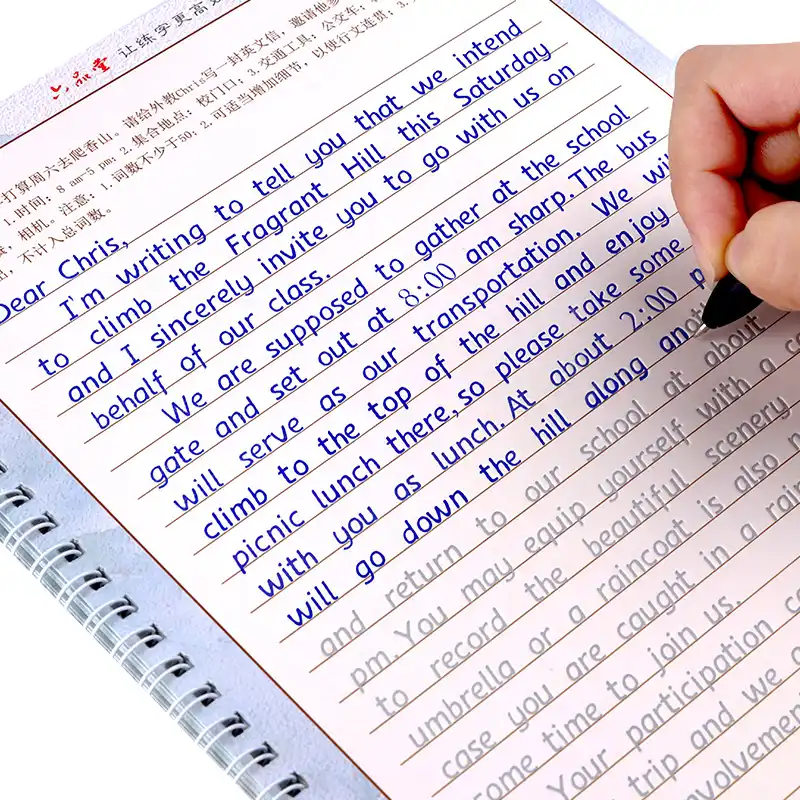 六品堂 让练字更高效
打算周六去爬香山。请给外教Chris写一封英文信,邀请他参
1.时间:8 am-5 pm;2.集合地点:校门口;3.交通工具:公交车;
相机。注意:1.词数不少于50;2.可适当增加细节,以使行文连贯;3.
不计入总词数。
Dear Chris,
I'm writing to tell you that we intend
to climb the Fragrant Hill this Saturday
and I sincerely invite you to go with us on
behalf of our class.
We are supposed to gather at the school
gate and set out at 8:00 am sharp. The bus
will serve as our transportation. We will
climb to the top of the hill and enjoy
picnic lunch there, so please take some
with you as lunch. At about 2:00 p
will go down the hill along another
and return to our school at about
pm. You may equip yourself with a ca
to record the beautiful scenery
umbrella or a raincoat is also
case you are caught in a rain
some time to join us.
Your participation
trip and we
involvement